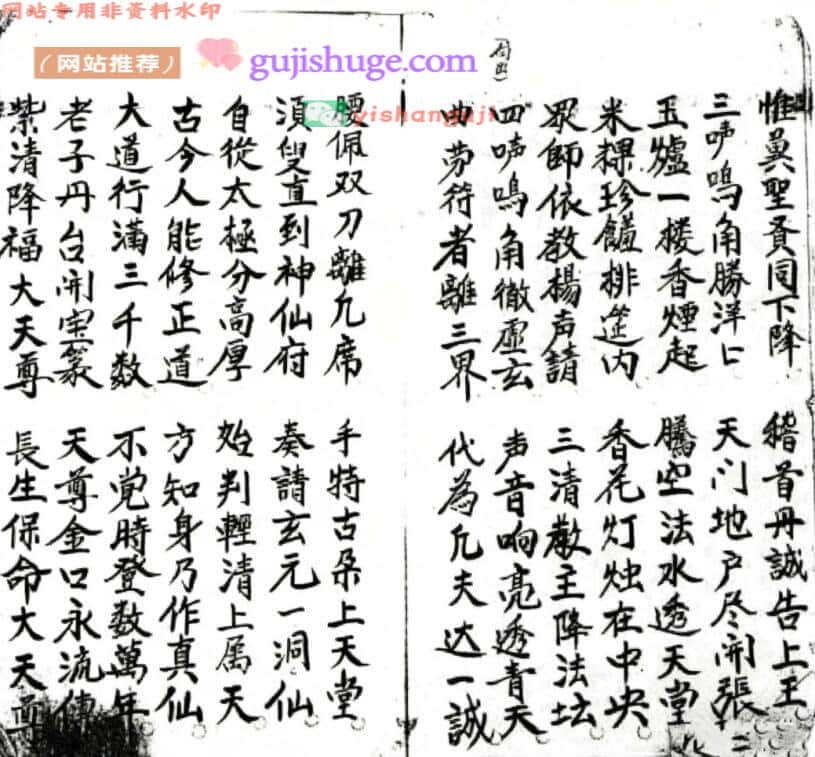 网站专用非资料水印
(网站推荐)
gujishuge.com
yishanguji
惟兾聖賢同下降 稽首丹誠告上王
三吽鳴角勝洋上 天门地户尽開張
玉爐一楼香煙起 騰空法水透天堂
米粿珍饈排筵内 香花灯烛在中央
眾師依教揚声請 三清教主降法坛
四吽鳴角徹虚玄 声音响亮透青天
劳符者離三界 代為凡夫达一誠
腰佩双刀離几席 手特古朵上天堂
須臾直到神仙府 奏請玄元一洞仙
自從太極分高厚 始判輕清上属天
古今人能修正道 方知身乃作真仙
大道行满三千数 不觉時登数萬年
老子丹台開宝籙 天尊金口永流傳
紫清降福大天尊 長生保命大天尊